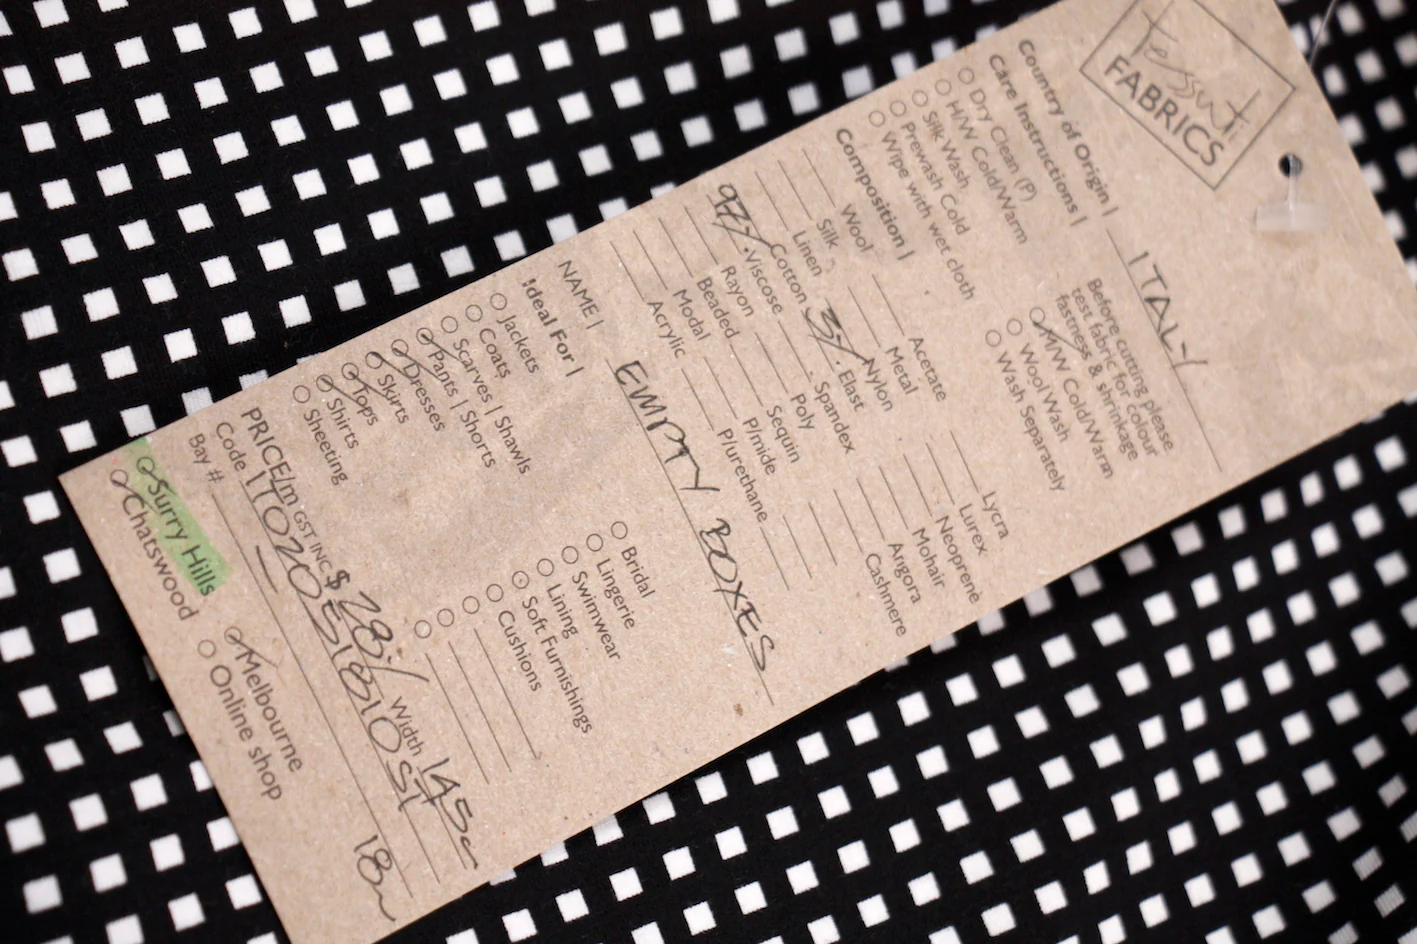 tessuti
FABRICS
Country of Origin | ITALY
Care Instructions |
Dry Clean (P)
H/W Cold/Warm
Silk Wash
Prewash Cold
Wipe with wet cloth
Before cutting please
test fabric for colour
fastness & shrinkage
M/W Cold/Warm
Wool Wash
Wash Separately
Composition |
Wool
Silk
Linen
Cotton
97% Viscose
Rayon
Beaded
Modal
Acrylic
Acetate
Metal
Nylon
3% Elast
Spandex
Poly
Sequin
P/mide
P/urethane
Lycra
Lurex
Neoprene
Mohair
Angora
Cashmere
NAME | EMPTY BOXES
Ideal For |
Jackets
Coats
Scarves | Shawls
Pants | Shorts
Dresses
Skirts
Tops
Shirts
Sheeting
Bridal
Lingerie
Swimwear
Lining
Soft Furnishings
Cushions
PRICE/m GST INC $ 28/ Width 145c
Code
Bay # 18m
Surry Hills
Chatswood
Melbourne
Online shop